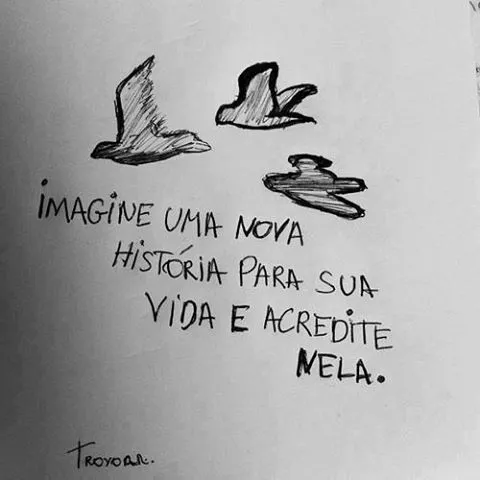 iMAGiNE UMA NOVA
HiSTÓRiA PARA SUA
ViDA E ACREDiTE
NELA.